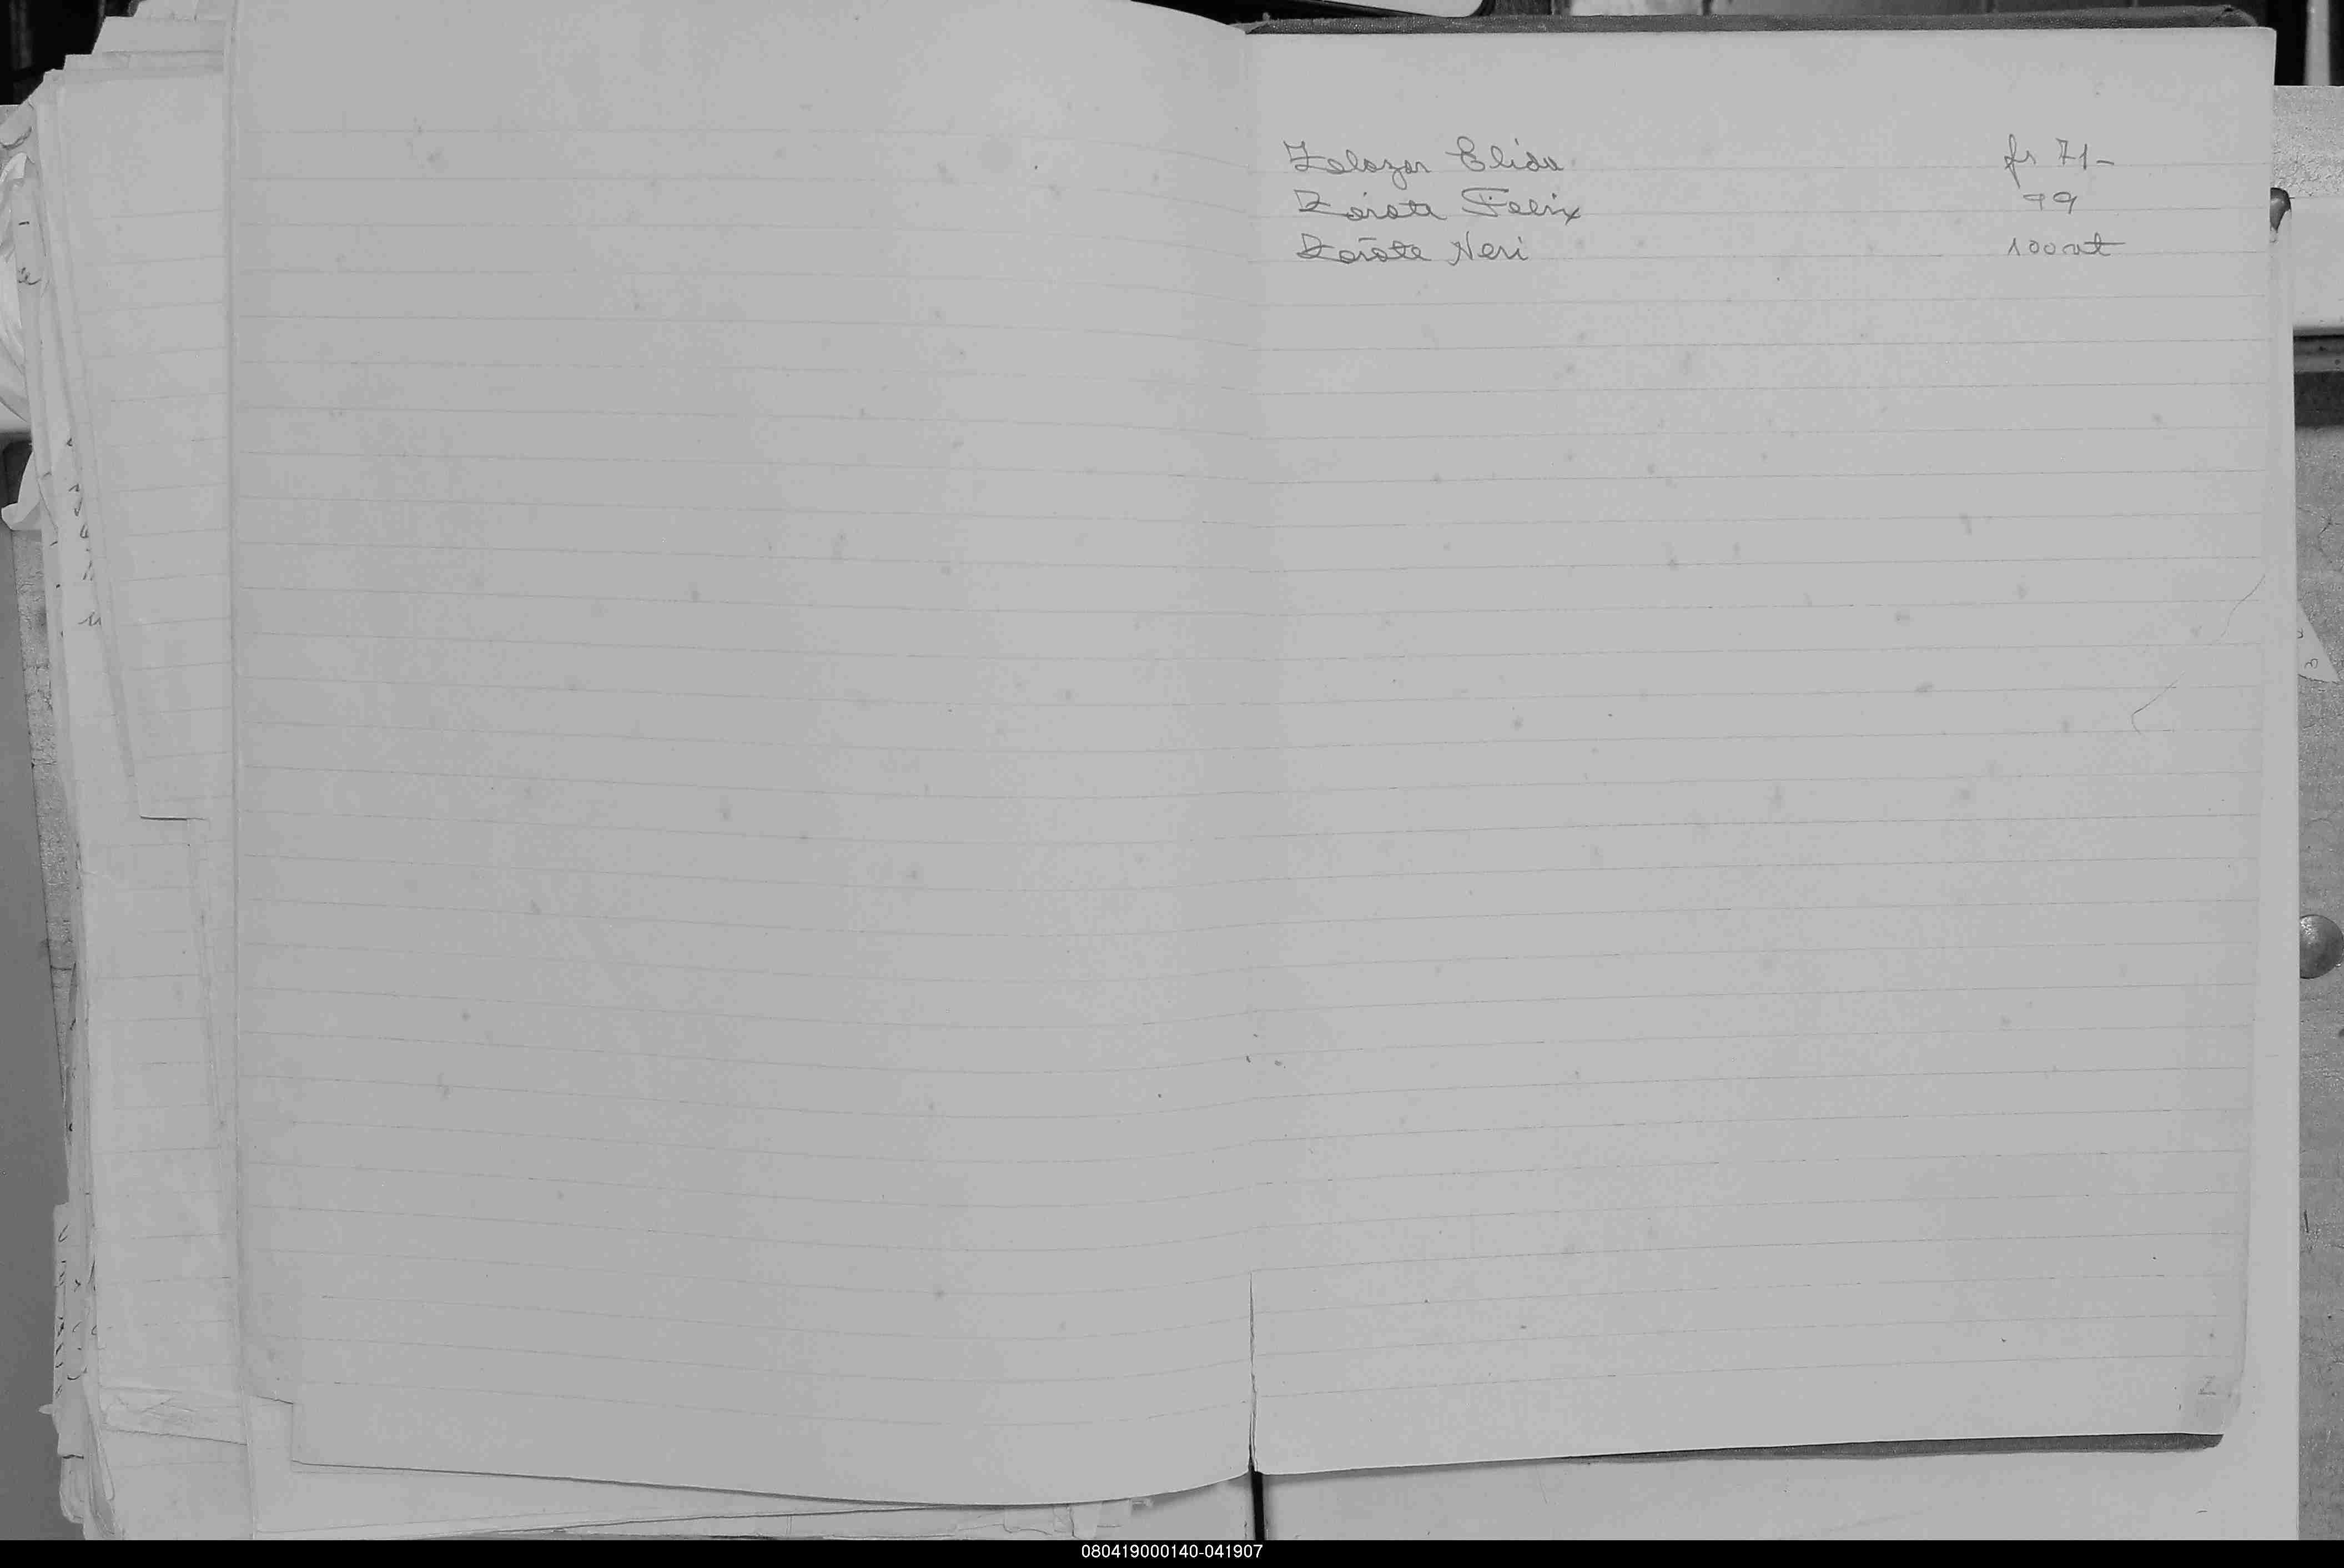 Zalazar Elida fs 71-
Zárate Felix 99
Zárate Neri 100 vt
Z
080419000140-041907